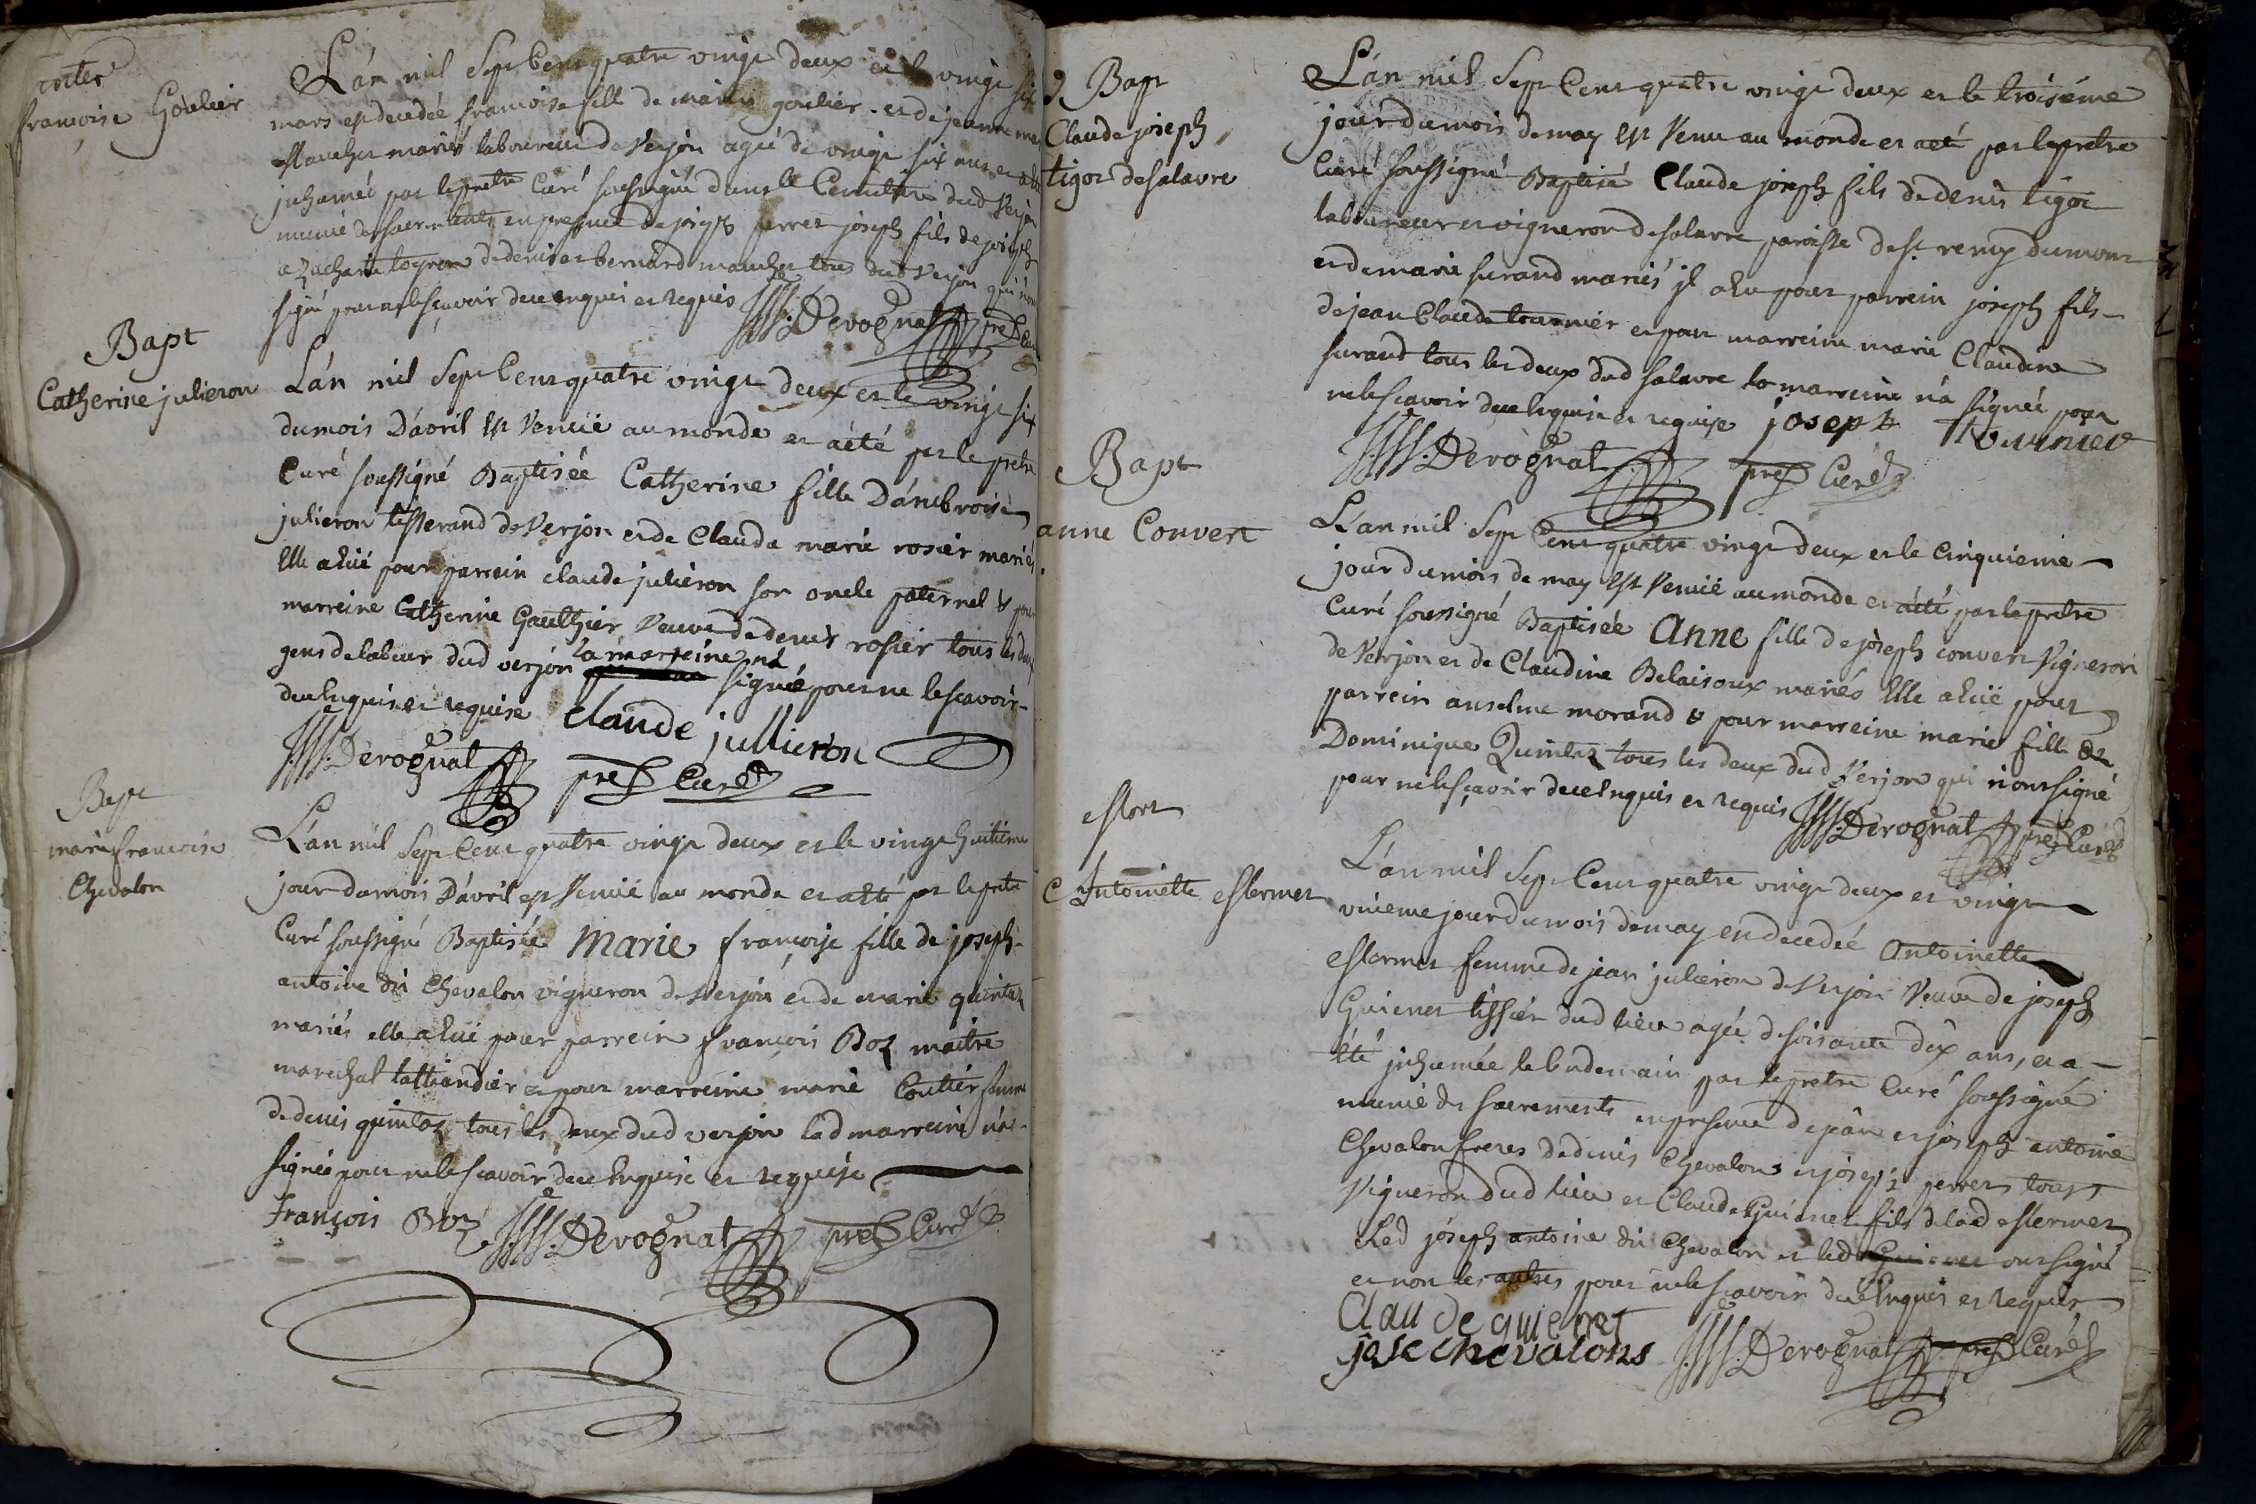 mortes
francoise Goulier
L'án mil Sept Cent quatre vingt deux et le vingt six
mars est decedée francoise fille de marin goulier et de jeanne marie
Maucher mariés laboureur de Verjon agée de vingt six ans et a été
inhumée par le pretre Curé soussigné dans le Cemetiere dud Verjon
munie des sacrements en presence de joseph perret joseph fils de joseph
et Zacharie fils de denis et bernard maucher tous dud Verjon qui n'ont
signé pour ne le sçavoir de ce enquis et requis JM: Derognat pretre Curé
Bapt
Catherine julieron
L'án mil Sept Cent quatre vingt deux et le vingt six
du mois D'ávril est Venuë au monde et a été par le pretre
Curé soussigné Baptisée Catherine fille D'ámbroise
julieron tisserand de Verjon et de Claude marie rosier mariés
Elle a Euë pour parrein claude julieron son oncle paternel & pour
marreine Catherine Gauthier Veuve de denis rosier tous les deux
gens de labeur dud verjon la marreine n'á signée pour ne le scavoir
de ce Enquise et requise claude jullieron
Derognat pretre Curé
Bapt
marie francoise
Chevalon
L'an mil Sept Cent quatre vingt deux et le vingt huitieme
jour du mois D'ávril est Venuë au monde et a été par le pretre
Curé soussigné Baptisée Marie françoise fille de joseph
antoine dit Chevalon vigneron de Verjon et de marie quintaz
mariés elle a Euë pour parrein francois Boz maitre
marechal talliandier et pour marreine marie Coutier femme
de denis quintaz tous les deux dud verjon lad marreine n'á
signée pour ne le scavoir de ce Enquise et requise
françois Boz Derognat pretre Curé
Bapt
Claude joseph
tigoz de salavre
L'án mil Sept Cent quatre vingt deux et le troisiéme
jour du mois de may est Venu au monde et a eté par le pretre
Curé soussigné Baptisé Claude joseph fils de denis tigoz
laboureur et vigneron de salavre paroisse de st. remy du mont
et de marie surand mariés jl a Eu pour parrein joseph fils
de jean Claude tournier et pour marreine marie Claudine
surand tous les deux dud salavre la marreine n'á signée pour
ne le scavoir de ce Enquise et requise joseph tournier
Derognat pretre Curé
Bapt
anne Convert
L'an mil Sept Cent quatre vingt deux et le cinquieme
jour du mois de may Est Venuë au monde et a été par le pretre
Curé soussigné Baptisée Anne fille de joseph convert Vigneron
de Verjon et de Claudine Belaisoux mariés Elle a Euë pour
parrein anselme morand & pour marreine marie fille de
Dominique Quintaz tous les deux dud Verjon qui n'ont signé
pour ne le sçavoir de ce Enquis et requis Derognat pretre Curé
Mort
Antoinette Mermet
L'án mil Sept Cent quatre vingt deux et vingt
uniéme jour du mois de may est decedeé Antoinette
Mermet femme de jean julieron de Verjon Veuve de joseph
Guienet tissier dud lieu agée de soixante dix ans, et a
Eté jnhumée le lendemain par le pretre Curé soussigné
munie des sacrements en presence de jean et joseph antoine
Chevalon freres de denis Chevalon et joseph perret tous
Vigneron dud lieu et Claude Guienet fils de lad Mermet
Led joseph antoine dit Chevalon et led Guienet ont signé
et non les autres pour ne le scavoir de ce Enquis et requis
Clau de guienet
jose chevalons Derognat pretre Curé